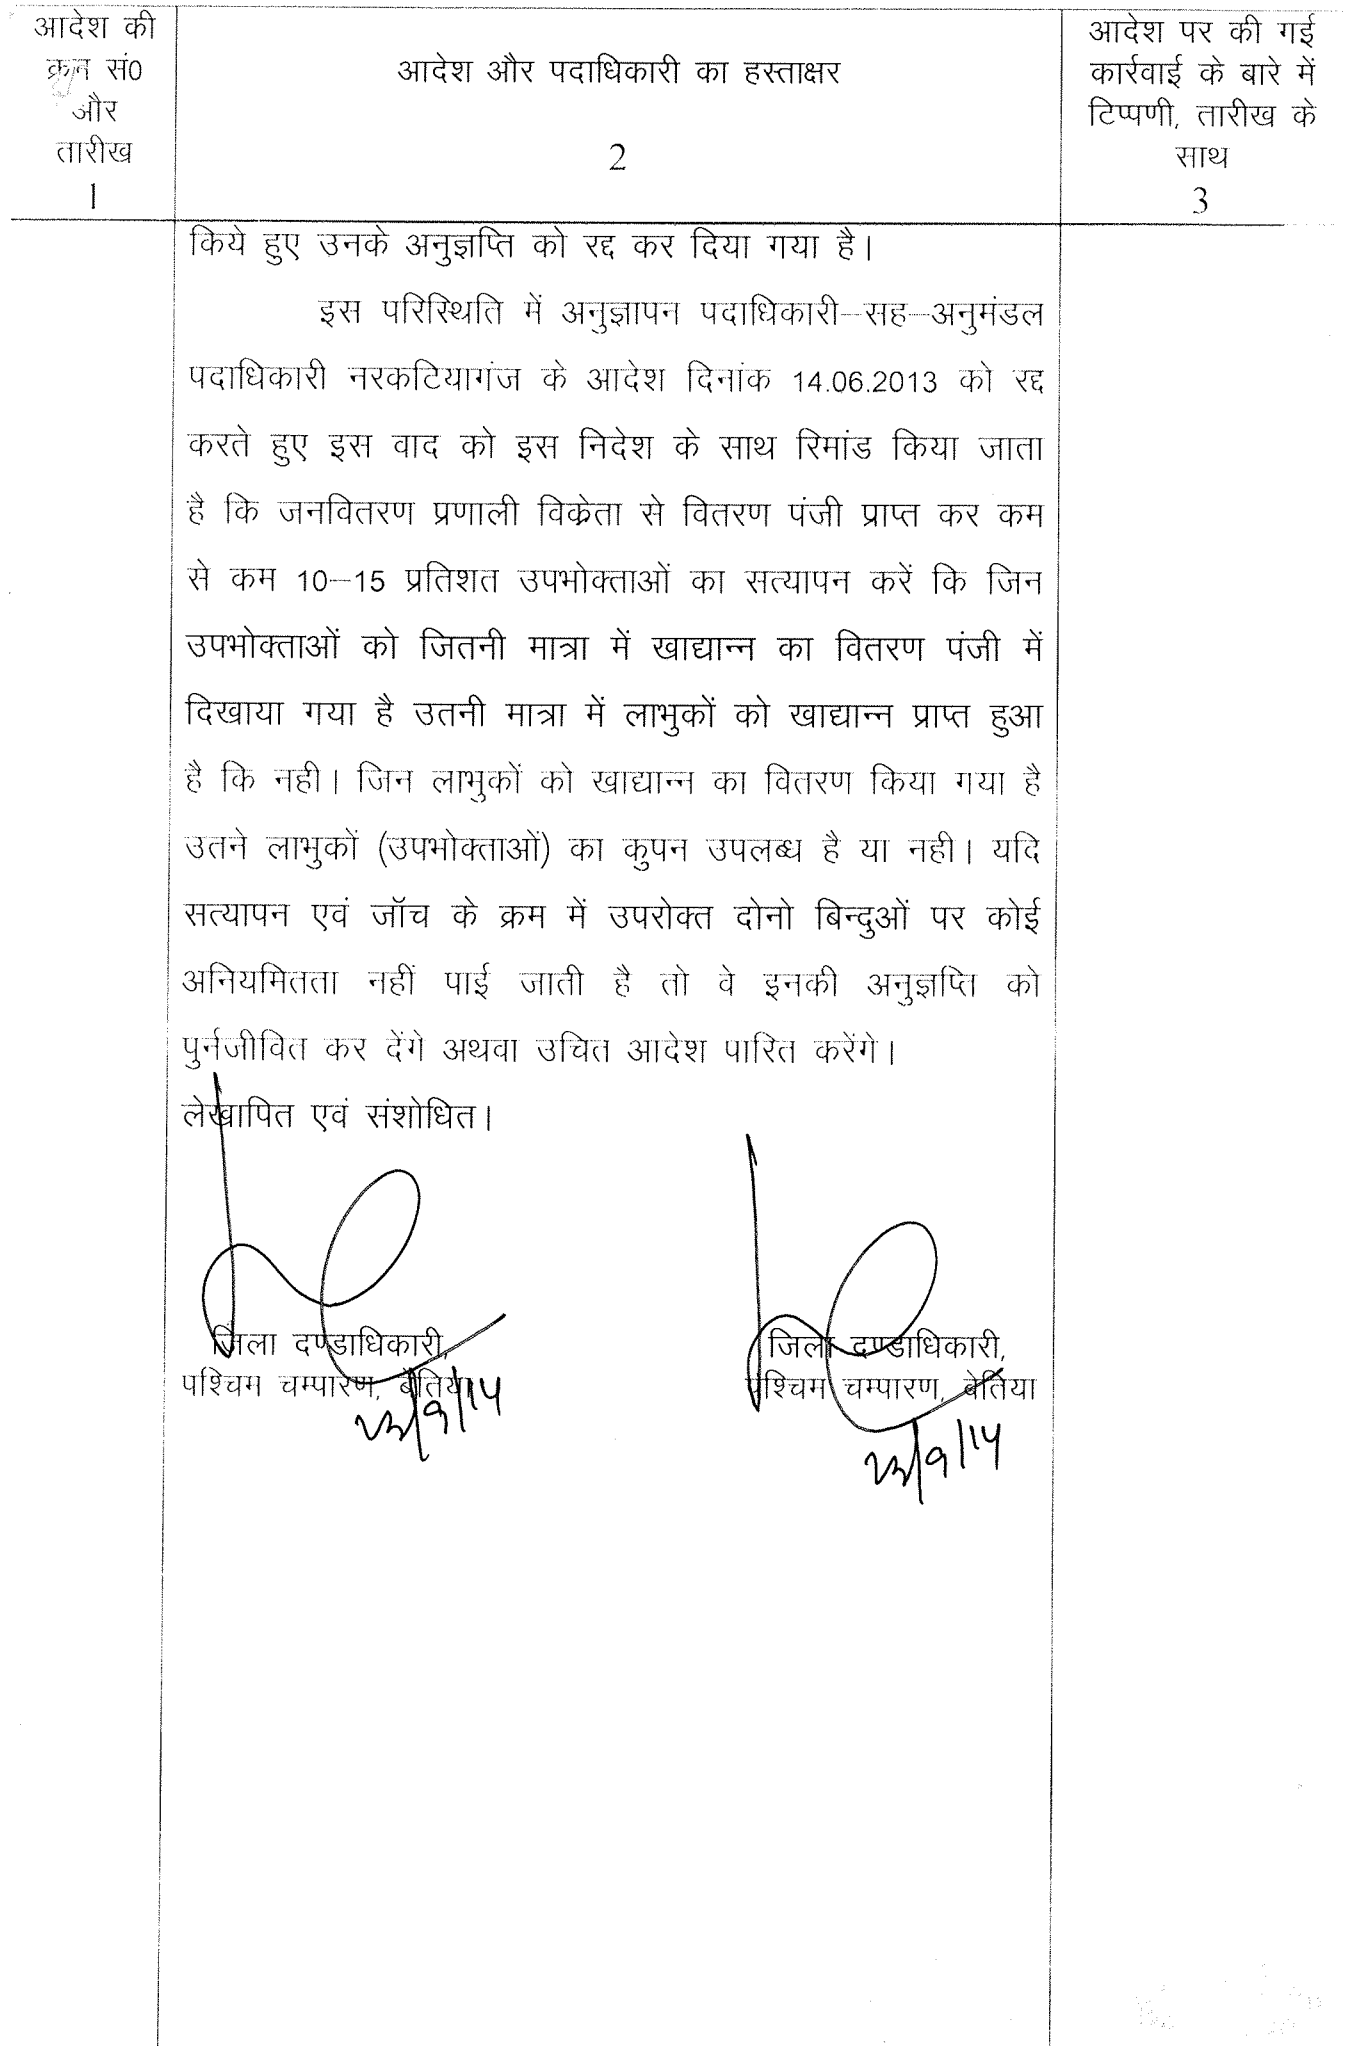 आदेश की
क्रम सं0
और
तारीख
1
आदेश और पदाधिकारी का हस्ताक्षर
2
आदेश पर की गई
कार्रवाई के बारे में
टिप्पणी, तारीख के
साथ
3
किये हुए उनके अनुज्ञप्ति को रद्द कर दिया गया है।
इस परिस्थिति में अनुज्ञापन पदाधिकारी–सह–अनुमंडल
पदाधिकारी नरकटियागंज के आदेश दिनांक 14.06.2013 को रद्द
करते हुए इस वाद को इस निदेश के साथ रिमांड किया जाता
है कि जनवितरण प्रणाली विक्रेता से वितरण पंजी प्राप्त कर कम
से कम 10–15 प्रतिशत उपभोक्ताओं का सत्यापन करें कि जिन
उपभोक्ताओं को जितनी मात्रा में खाद्यान्न का वितरण पंजी में
दिखाया गया है उतनी मात्रा में लाभुकों को खाद्यान्न प्राप्त हुआ
है कि नही। जिन लाभुकों को खाद्यान्न का वितरण किया गया है
उतने लाभुकों (उपभोक्ताओं) का कुपन उपलब्ध है या नही। यदि
सत्यापन एवं जॉच के क्रम में उपरोक्त दोनो बिन्दुओं पर कोई
अनियमितता नहीं पाई जाती है तो वे इनकी अनुज्ञप्ति को
पुर्नजीवित कर देंगे अथवा उचित आदेश पारित करेंगे।
लेखापित एवं संशोधित।
जिला दण्डाधिकारी,
पश्चिम चम्पारण, बेतिया
23/9/14
जिला दण्डाधिकारी,
पश्चिम चम्पारण, बेतिया
23/9/14